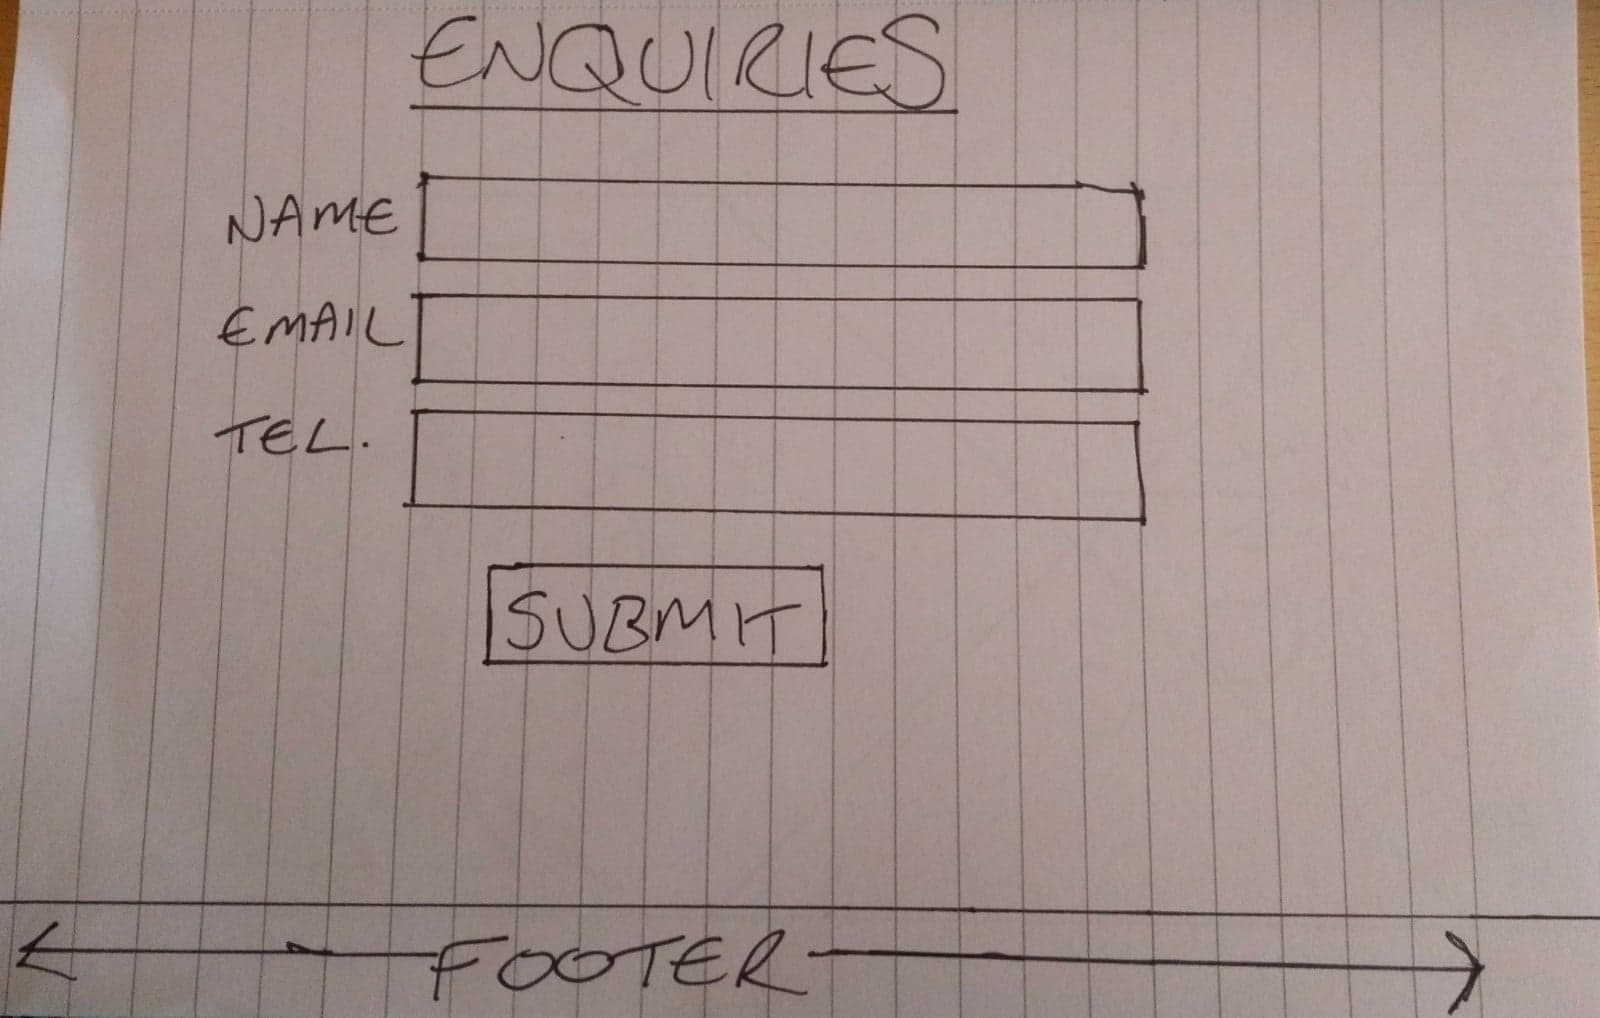 ENQUIRIES
NAME
EMAIL
TEL.
SUBMIT
FOOTER